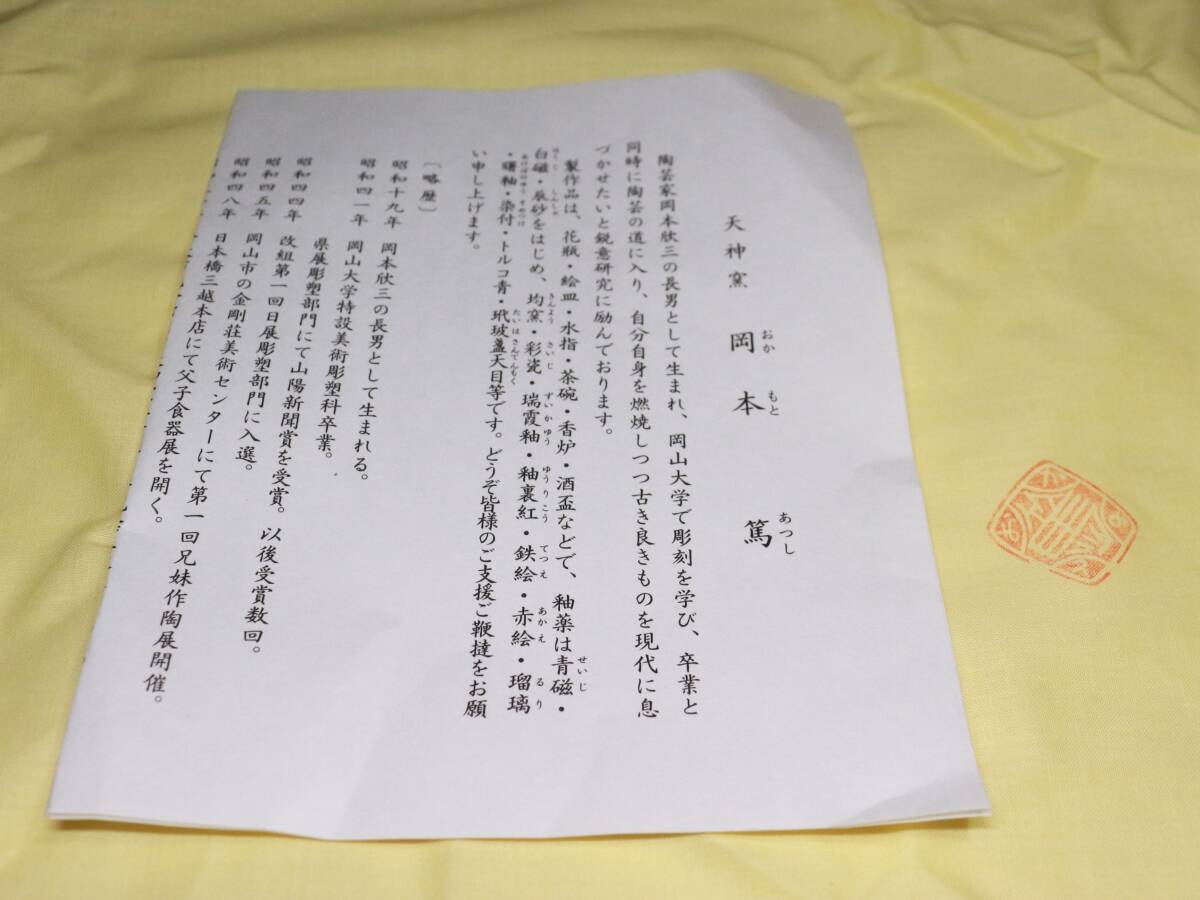 天神窯 岡本 篤
おか もと あつし
陶芸家岡本欣三の長男として生まれ、岡山大学で彫刻を学び、卒業と
同時に陶芸の道に入り、自分自身を燃焼しつつ古き良きものを現代に息
づかせたいと鋭意研究に励んでおります。
製作品は、花瓶・絵皿・水指・茶碗・香炉・酒盃などで、釉薬は青磁・
せいじ
白磁・辰砂をはじめ、均窯・彩瓷・瑞霞釉・釉裏紅・鉄絵・赤絵・瑠璃
はくじ しんしゃ きんよう さいじ ずいかゆう ゆうりこう てつえ あかえ るり
・曙釉・染付・トルコ青・玳玻盞天目等です。どうぞ皆様のご支援ご鞭撻をお願
あけぼのゆう そめつけ たいはさんてんもく
い申し上げます。
〔略歴〕
昭和十九年 岡本欣三の長男として生まれる。
昭和四一年 岡山大学特設美術彫塑科卒業。
県展彫塑部門にて山陽新聞賞を受賞。以後受賞数回。
昭和四四年 改組第一回日展彫塑部門に入選。
昭和四五年 岡山市の金剛荘美術センターにて第一回兄妹作陶展開催。
昭和四八年 日本橋三越本店にて父子食器展を開く。